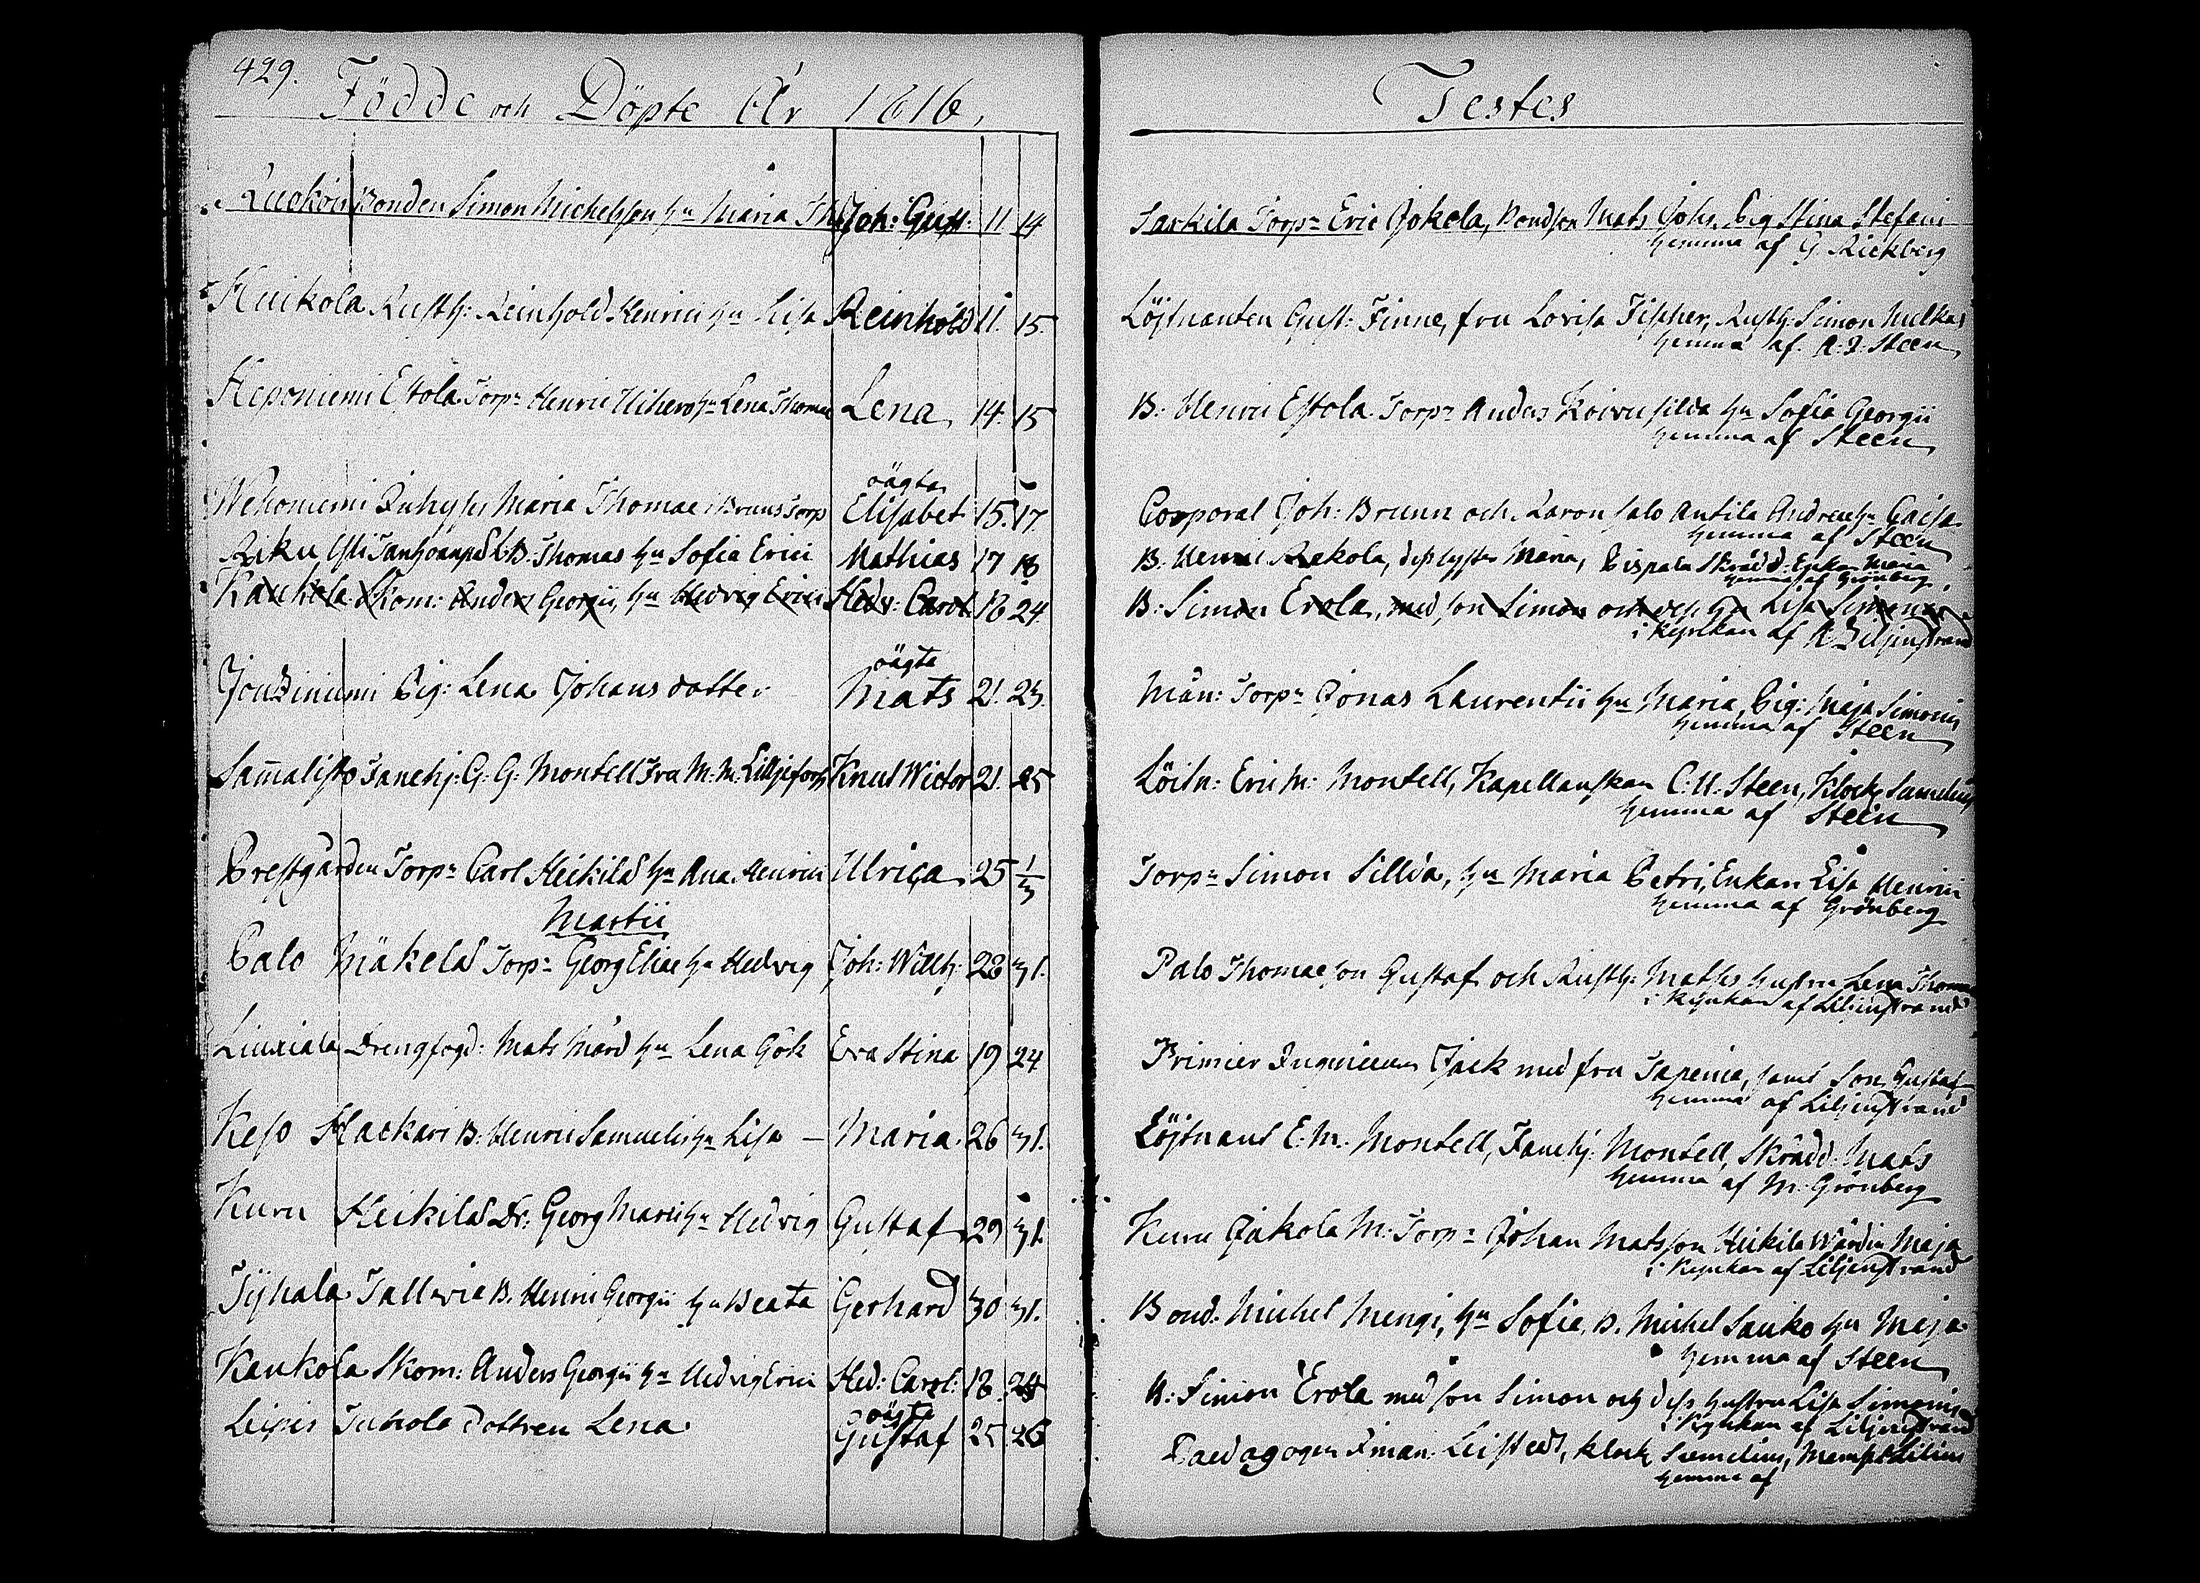 429.
Födde och Döpte År 1816.
Bonden Simon Michelsson hu Maria Joh: Gust: 11 14
Huikola Rusth: Reinhold Henrici hu Lisa Reinhold 11. 15.
Heponiemi Estola Torp: Henric hu Lena Thomae Lena 14. 15
oägta
Wehoniemi Maria Thomae Bruns Torp Elisabet 15. 17.
Riku B: Thomas hu Sofia Erici Mathias 17 18
Kaukola Skom: Anders Georgii hu Hedvig Erici Hedv: Carol: 18 24.
oägta
Pig: Lena Johans dotter Mats 21. 23.
Sam̄alisto Fanehj: G: G: Montell Fru M: M: Knut Wictor 21. 25
Prestgården Torp: Carl Heikilä hu Ana Henrici Ulrica 25 1/3
Martii
Palo Mäkelä Torp: Georg Eliae hu Hedvig Joh: Willh: 28 31.
Liuxiala Drengfogd: Mats Mård hu Lena Gök Eva Stina 19 24
Keso Hackari B: Henric Samuelis hu Lisa — Maria. 26 31.
Kuru Heikilä Dr: Georg hu Hedvig Gustaf 29 31.
Tyhala B. Henric Georgii hu Beata Gerhard 30 31.
Kaukola Skom: Anders Georgii hu Hedvig Erici Hed: Carol: 18. 24
oägta
Juhola dottren Lena Gustaf 25 26
Testes
Sarkila Torp: Eric Jokela, Bondson Mats Johs, Pig Stina Stefani
hemma af G. Rickberg
Löjtnanten Gust: Finne, fru Lovisa Fischer, Rusth: Simon
hemma af A: J: Steen
B: Henric Estola Torp: Anders hu Sofia Georgii
hemma af Steen
Corporal Joh: Brunn och Karon Salo Antila Andreae hu Caisa
hemma af Steen
B: Henric Rekola, dess syster Maria, Pispala Skrädd: Enkan Maria
hemma af Grönberg
B: Simon Erola, med son Simon och dess hu Lisa Simonis
i kyrkan af A. Liljenstrand
Mån: Torp: Jonas Laurentii hu Maria, Pig: Maja Simonis
hemma af Steen
Löitn: Eric M: Montell, Kapellanskan C: U: Steen, Klock Samelius
hemma af Steen
Torp: Simon Sillda, hu Maria Petri, Enkan Lisa Henrici
hemma af Grönberg
Palo Thomae son Gustaf och Rusth: Matses hustru Lena Thomae
i Kyrkan af Liljenstrand
Primier Ingenieuren Jack med fru samt Son Gustaf
hemma af Liljenstrand
Löjtnant E: M: Montell, Fanehj: Montell, Skrädd: Mats
hemma af M: Grönberg
Kuru Jakola M: Torp: Johan Matsson Heikila Wärdin Maja
i Kyrkan af Liljenstrand
Bond: Michel Mengi, hu Sofia, B. Michel Sauko hu Maja
hemma af Steen
B: Simon Erola med son Simon och dess hustru Lisa Simonis
i Kyrkan af Liljenstrand
Paedagogen Leistedt, Klock Samelius,
hemma af